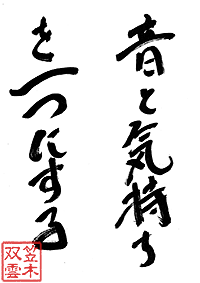 音と気持ち
を一つにする
笠木
双雲